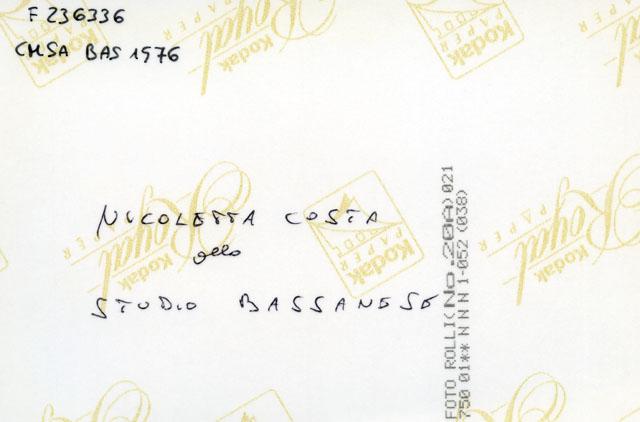 F 236336
CMSA BAS 1976
NICOLETTA COSTA
allo
STUDIO BASSANESE
FOTO ROLLI(No.20A)021
750 01** N N N 1-052 (038)
Kodak
Royal
PAPER